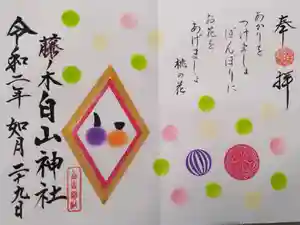 奉拝
あかりを
つけましょ
ぼんぼりに
お花を
あげましょ
桃の花
藤ノ木白山神社
令和二年如月二十九日